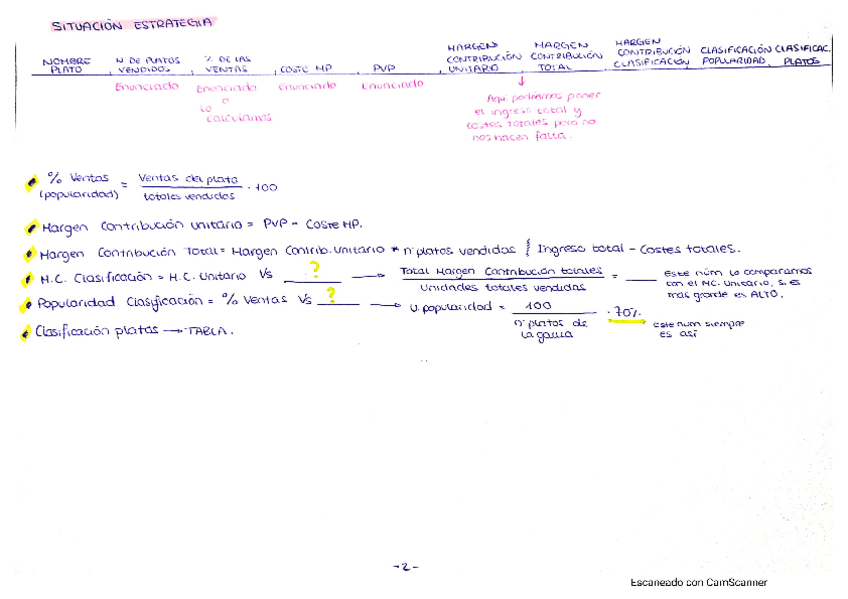 SITUACIÓN ESTRATEGIA
NOMBRE PLATO
N DE PLATOS VENDIDOS
% DE LAS VENTAS
COSTE MP
PVP
MARGEN CONTRIBUCIÓN UNITARIO
MARGEN CONTRIBUCIÓN TOTAL
MARGEN CONTRIBUCIÓN CLASIFICACIÓN
CLASIFICACIÓN POPULARIDAD
CLASIFICAC. PLATOS
Enunciado
Enunciado
o
lo
calculamos
Enunciado
Enunciado
Aqui podriamos poner
el ingreso total y
costes totales pero no
nos hacen falta.
% Ventas (popularidad) = Ventas del plato / totales vendidas · 100
Margen Contribución unitario = PVP - Coste MP.
Margen Contribución Total = Margen Contrib. Unitario * nº platos vendidos Ingreso total - Costes totales.
M.C. Clasificación = M.C. Unitario Vs ? → Total Margen Contribución totales / Unidades totales vendidas = ___ Este núm lo comparamos
con el MC. Unitario, si es
más grande es ALTO.
Popularidad Clasificación = % Ventas Vs ? → U. popularidad = 100 / nº platos de la gama · 70%
este num siempre
es así
Clasificación platos → TABLA.
-2-
Escaneado con CamScanner